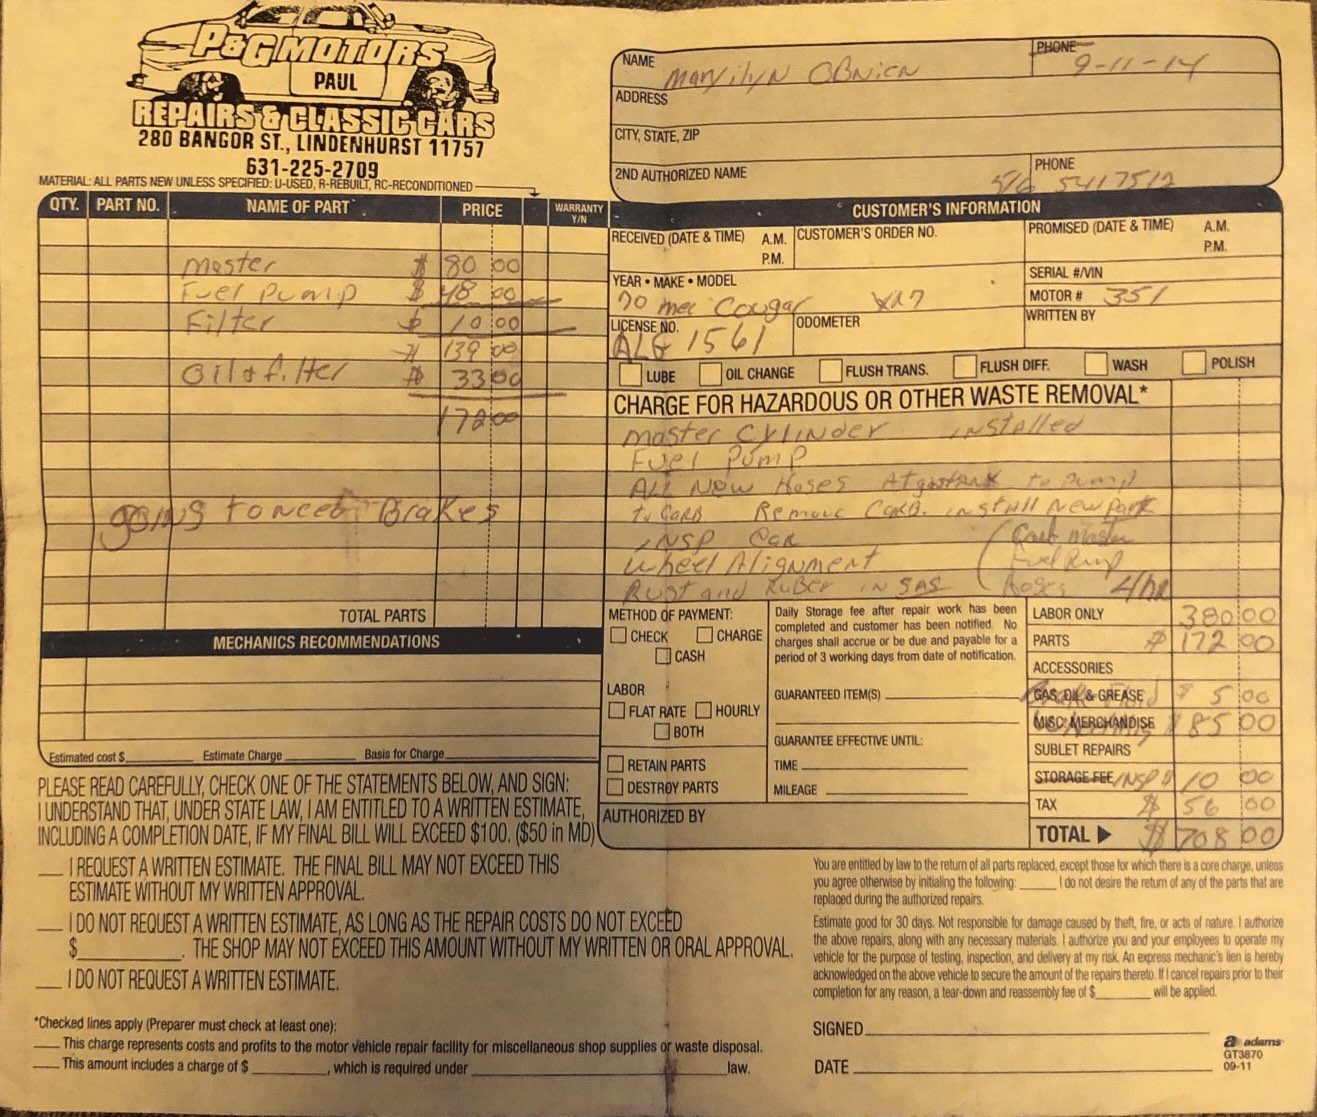 P&G MOTORS
PAUL
REPAIRS & CLASSIC CARS
280 BANGOR ST., LINDENHURST 11757
631-225-2709
MATERIAL: ALL PARTS NEW UNLESS SPECIFIED: U-USED, R-REBUILT, RC-RECONDITIONED
NAME Maryilyn OBrien PHONE 9-11-14
ADDRESS
CITY, STATE, ZIP
2ND AUTHORIZED NAME PHONE 516 5417512
QTY. PART NO. NAME OF PART PRICE WARRANTY Y/N
Master $ 80 00
Fuel Pump $ 48 00
Filter $ 10 00
$ 139 00
Oil & filter $ 33 00
172 00
going to need Brakes
TOTAL PARTS
MECHANICS RECOMMENDATIONS
Estimated cost $ Estimate Charge Basis for Charge
CUSTOMER'S INFORMATION
RECEIVED (DATE & TIME) A.M. P.M. CUSTOMER'S ORDER NO. PROMISED (DATE & TIME) A.M. P.M.
YEAR • MAKE • MODEL SERIAL #/VIN
70 mer Cougar XR7 MOTOR # 351
LICENSE NO. ODOMETER WRITTEN BY
ALG 1561
LUBE OIL CHANGE FLUSH TRANS. FLUSH DIFF. WASH POLISH
CHARGE FOR HAZARDOUS OR OTHER WASTE REMOVAL*
Master Cylinder installed
Fuel Pump
ALL New Hoses At gastank to pump
to Carb Remove Carb. install New Part
INSP Car (Carb Master
Wheel Alignment Fuel Pump
Rust and Ruber in gas Hoses 4hr
METHOD OF PAYMENT:
CHECK CHARGE
CASH
LABOR
FLAT RATE HOURLY
BOTH
RETAIN PARTS
DESTROY PARTS
AUTHORIZED BY
Daily Storage fee after repair work has been
completed and customer has been notified. No
charges shall accrue or be due and payable for a
period of 3 working days from date of notification.
GUARANTEED ITEM(S)
GUARANTEE EFFECTIVE UNTIL:
TIME
MILEAGE
LABOR ONLY 380 00
PARTS $ 172 00
ACCESSORIES
GAS, OIL & GREASE Brake Fluid $ 5 00
MISC. MERCHANDISE $ 85 00
SUBLET REPAIRS
STORAGE FEE INSP $ 10 00
TAX $ 56 00
TOTAL $ 708 00
PLEASE READ CAREFULLY, CHECK ONE OF THE STATEMENTS BELOW, AND SIGN:
I UNDERSTAND THAT, UNDER STATE LAW, I AM ENTITLED TO A WRITTEN ESTIMATE,
INCLUDING A COMPLETION DATE, IF MY FINAL BILL WILL EXCEED $100. ($50 in MD)
I REQUEST A WRITTEN ESTIMATE. THE FINAL BILL MAY NOT EXCEED THIS
ESTIMATE WITHOUT MY WRITTEN APPROVAL.
I DO NOT REQUEST A WRITTEN ESTIMATE, AS LONG AS THE REPAIR COSTS DO NOT EXCEED
$ . THE SHOP MAY NOT EXCEED THIS AMOUNT WITHOUT MY WRITTEN OR ORAL APPROVAL.
I DO NOT REQUEST A WRITTEN ESTIMATE.
*Checked lines apply (Preparer must check at least one):
This charge represents costs and profits to the motor vehicle repair facility for miscellaneous shop supplies or waste disposal.
This amount includes a charge of $ , which is required under law.
You are entitled by law to the return of all parts replaced, except those for which there is a core charge, unless
you agree otherwise by initialing the following: I do not desire the return of any of the parts that are
replaced during the authorized repairs.
Estimate good for 30 days. Not responsible for damage caused by theft, fire, or acts of nature. I authorize
the above repairs, along with any necessary materials. I authorize you and your employees to operate my
vehicle for the purpose of testing, inspection, and delivery at my risk. An express mechanic's lien is hereby
acknowledged on the above vehicle to secure the amount of the repairs thereto. If I cancel repairs prior to their
completion for any reason, a tear-down and reassembly fee of $ will be applied.
SIGNED
DATE
adams
GT3870
09-11